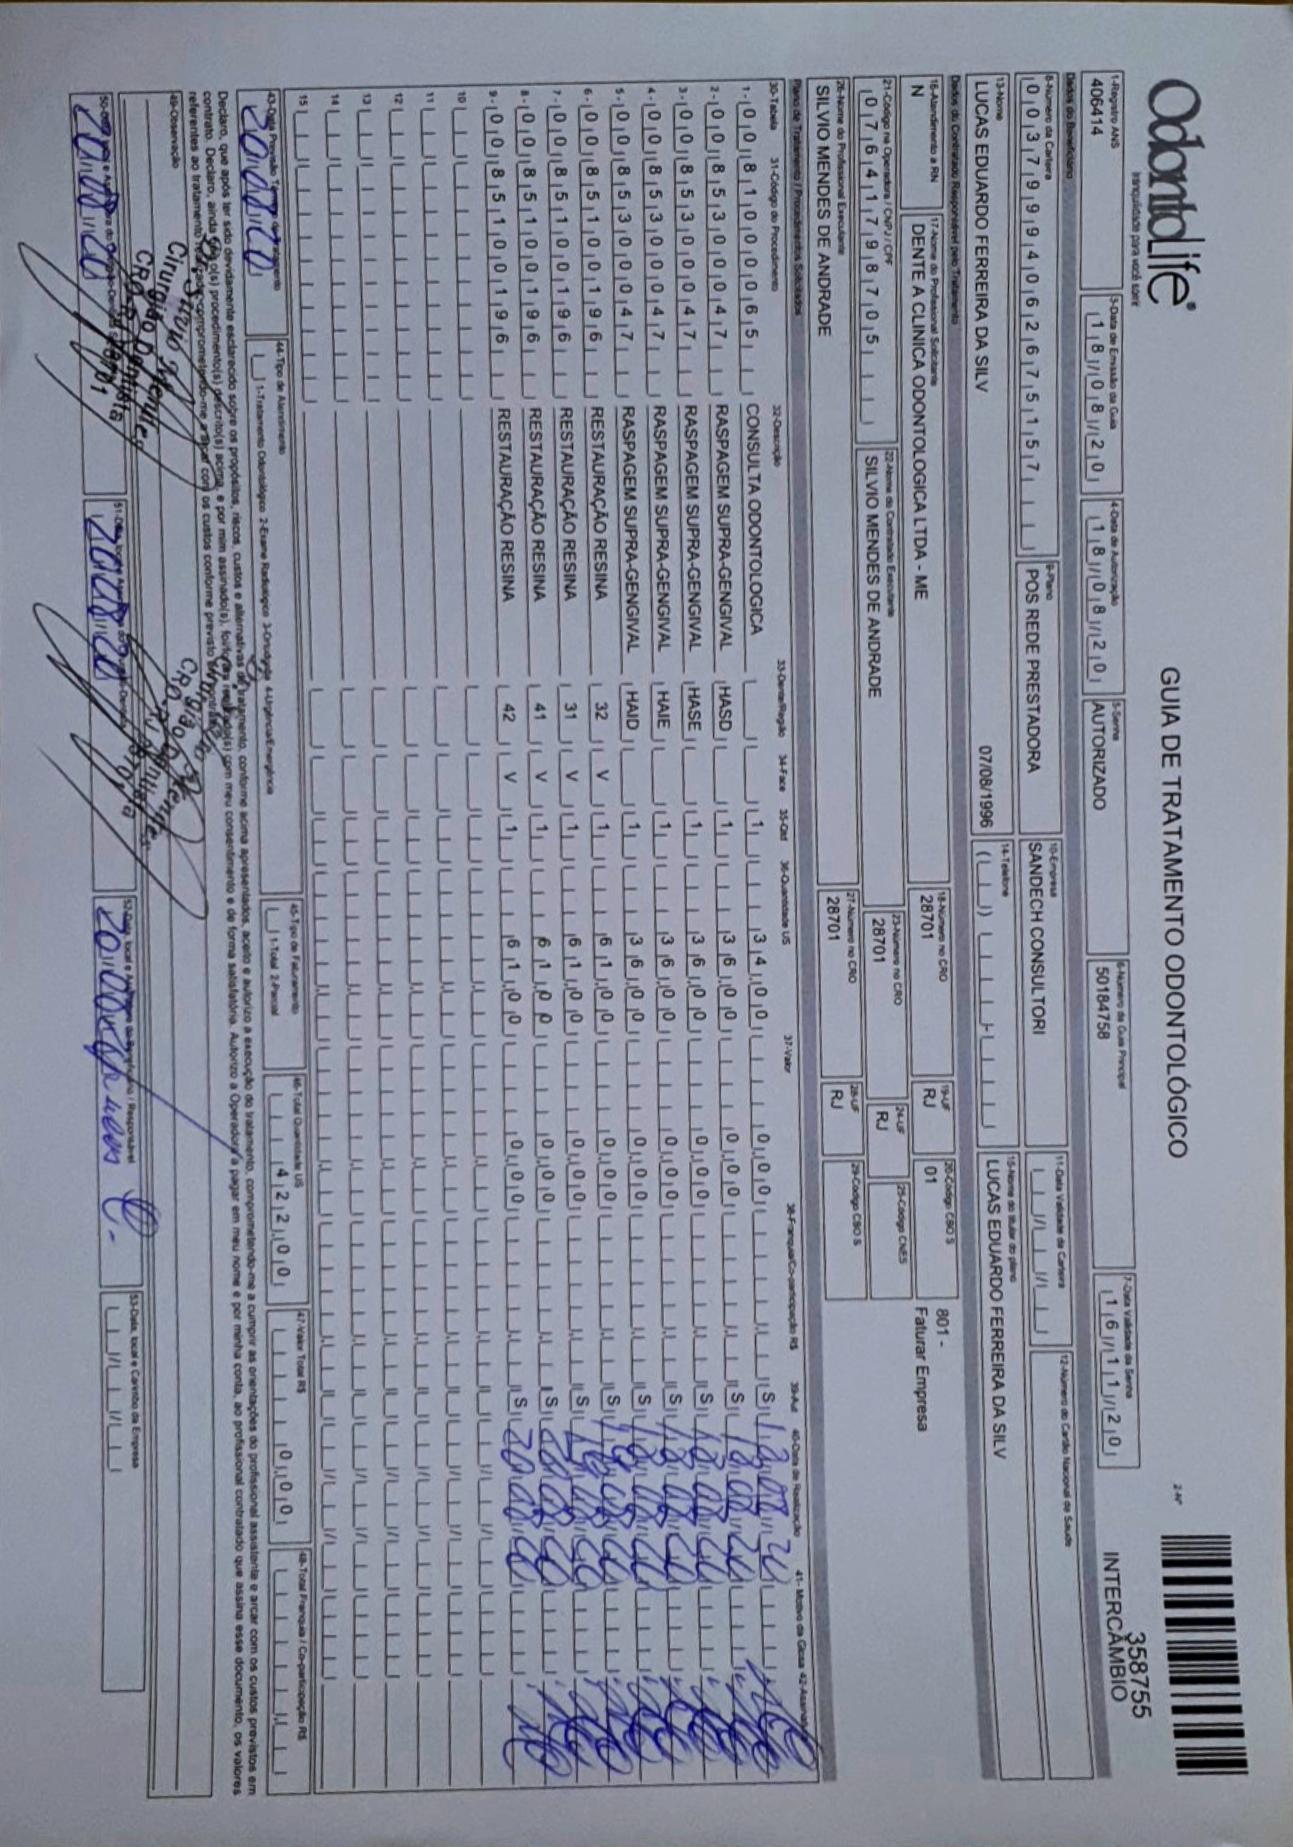 OdontoLife®
tranquilidade para você sorrir
GUIA DE TRATAMENTO ODONTOLÓGICO
2-Nº
358755
INTERCÂMBIO
1-Registro ANS
406414
3-Data de Emissão da Guia
18/08/20
4-Data de Autorização
18/08/20
5-Senha
AUTORIZADO
6-Número da Guia Principal
50184758
7-Data Validade da Senha
16/11/20
Dados do Beneficiário
8-Número da Carteira
00379994062675157
9-Plano
POS REDE PRESTADORA
10-Empresa
SANDECH CONSULTORI
11-Data Validade da Carteira
12-Número do Cartão Nacional de Saúde
13-Nome
LUCAS EDUARDO FERREIRA DA SILV
07/08/1996
14-Telefone
15-Nome do titular do plano
LUCAS EDUARDO FERREIRA DA SILV
Dados do Contratado Responsável pelo Tratamento
16-Atendimento a RN
N
17-Nome do Profissional Solicitante
DENTE A CLINICA ODONTOLOGICA LTDA - ME
18-Número no CRO
28701
19-UF
RJ
20-Código CBO S
01
801 -
Faturar Empresa
21-Código na Operadora / CNPJ / CPF
07641798705
22-Nome do Contratado Executante
SILVIO MENDES DE ANDRADE
23-Número no CRO
28701
24-UF
RJ
25-Código CNES
26-Nome do Profissional Executante
SILVIO MENDES DE ANDRADE
27-Número no CRO
28701
28-UF
RJ
29-Código CBO S
Plano de Tratamento / Procedimentos Solicitados
30-Tabela 31-Código do Procedimento 32-Descrição 33-Dente/Região 34-Face 35-Qtd 36-Quantidade US 37-Valor 38-Franquia/Co-participação R$ 39-Aut 40-Data de Realização 41- Motivo da Glosa 42-Assinatura
1- 00 81000065 CONSULTA ODONTOLOGICA 1 34,00 0,00 S 18/08/20
2- 00 85300047 RASPAGEM SUPRA-GENGIVAL HASD 1 36,00 0,00 S 18/08/20
3- 00 85300047 RASPAGEM SUPRA-GENGIVAL HASE 1 36,00 0,00 S 18/08/20
4- 00 85300047 RASPAGEM SUPRA-GENGIVAL HAIE 1 36,00 0,00 S 18/08/20
5- 00 85300047 RASPAGEM SUPRA-GENGIVAL HAID 1 36,00 0,00 S 18/08/20
6- 00 85100196 RESTAURAÇÃO RESINA 32 V 1 61,00 0,00 S 18/08/20
7- 00 85100196 RESTAURAÇÃO RESINA 31 V 1 61,00 0,00 S
8- 00 85100196 RESTAURAÇÃO RESINA 41 V 1 61,00 0,00 S 20/08/20
9- 00 85100196 RESTAURAÇÃO RESINA 42 V 1 61,00 0,00 S 20/08/20
10
11
12
13
14
15
43-Data Previsão Término do Tratamento
20/08/20
44-Tipo de Atendimento
1-Tratamento Odontológico 2-Exame Radiológico 3-Ortodontia 4-Urgência/Emergência
45-Tipo de Faturamento
1-Total 2-Parcial
46-Total Quantidade US
422,00
47-Valor Total R$
0,00
48-Total Franquia / Co-participação R$
Declaro, que após ter sido devidamente esclarecido sobre os propósitos, riscos, custos e alternativas de tratamento, conforme acima apresentados, aceito e autorizo a execução do tratamento, comprometendo-me a cumprir as orientações do profissional assistente e arcar com os custos previstos em
contrato. Declaro, ainda que o(s) procedimento(s) descrito(s) acima, e por mim assinado(s), foi/foram realizado(s) com meu consentimento e de forma satisfatória. Autorizo a Operadora a pagar em meu nome e por minha conta, ao profissional contratado que assina esse documento, os valores
referentes ao tratamento realizado, comprometendo-me a arcar com os custos conforme previsto em contrato.
49-Observação
50-Data, local e Assinatura do Cirurgião-Dentista
20/08/20
Cirurgião Dentista
51-Data, local e Assinatura do Cirurgião-Dentista
20/08/20
52-Data, local e Assinatura do Beneficiário / Responsável
20/08/20
53-Data, local e Carimbo da Empresa